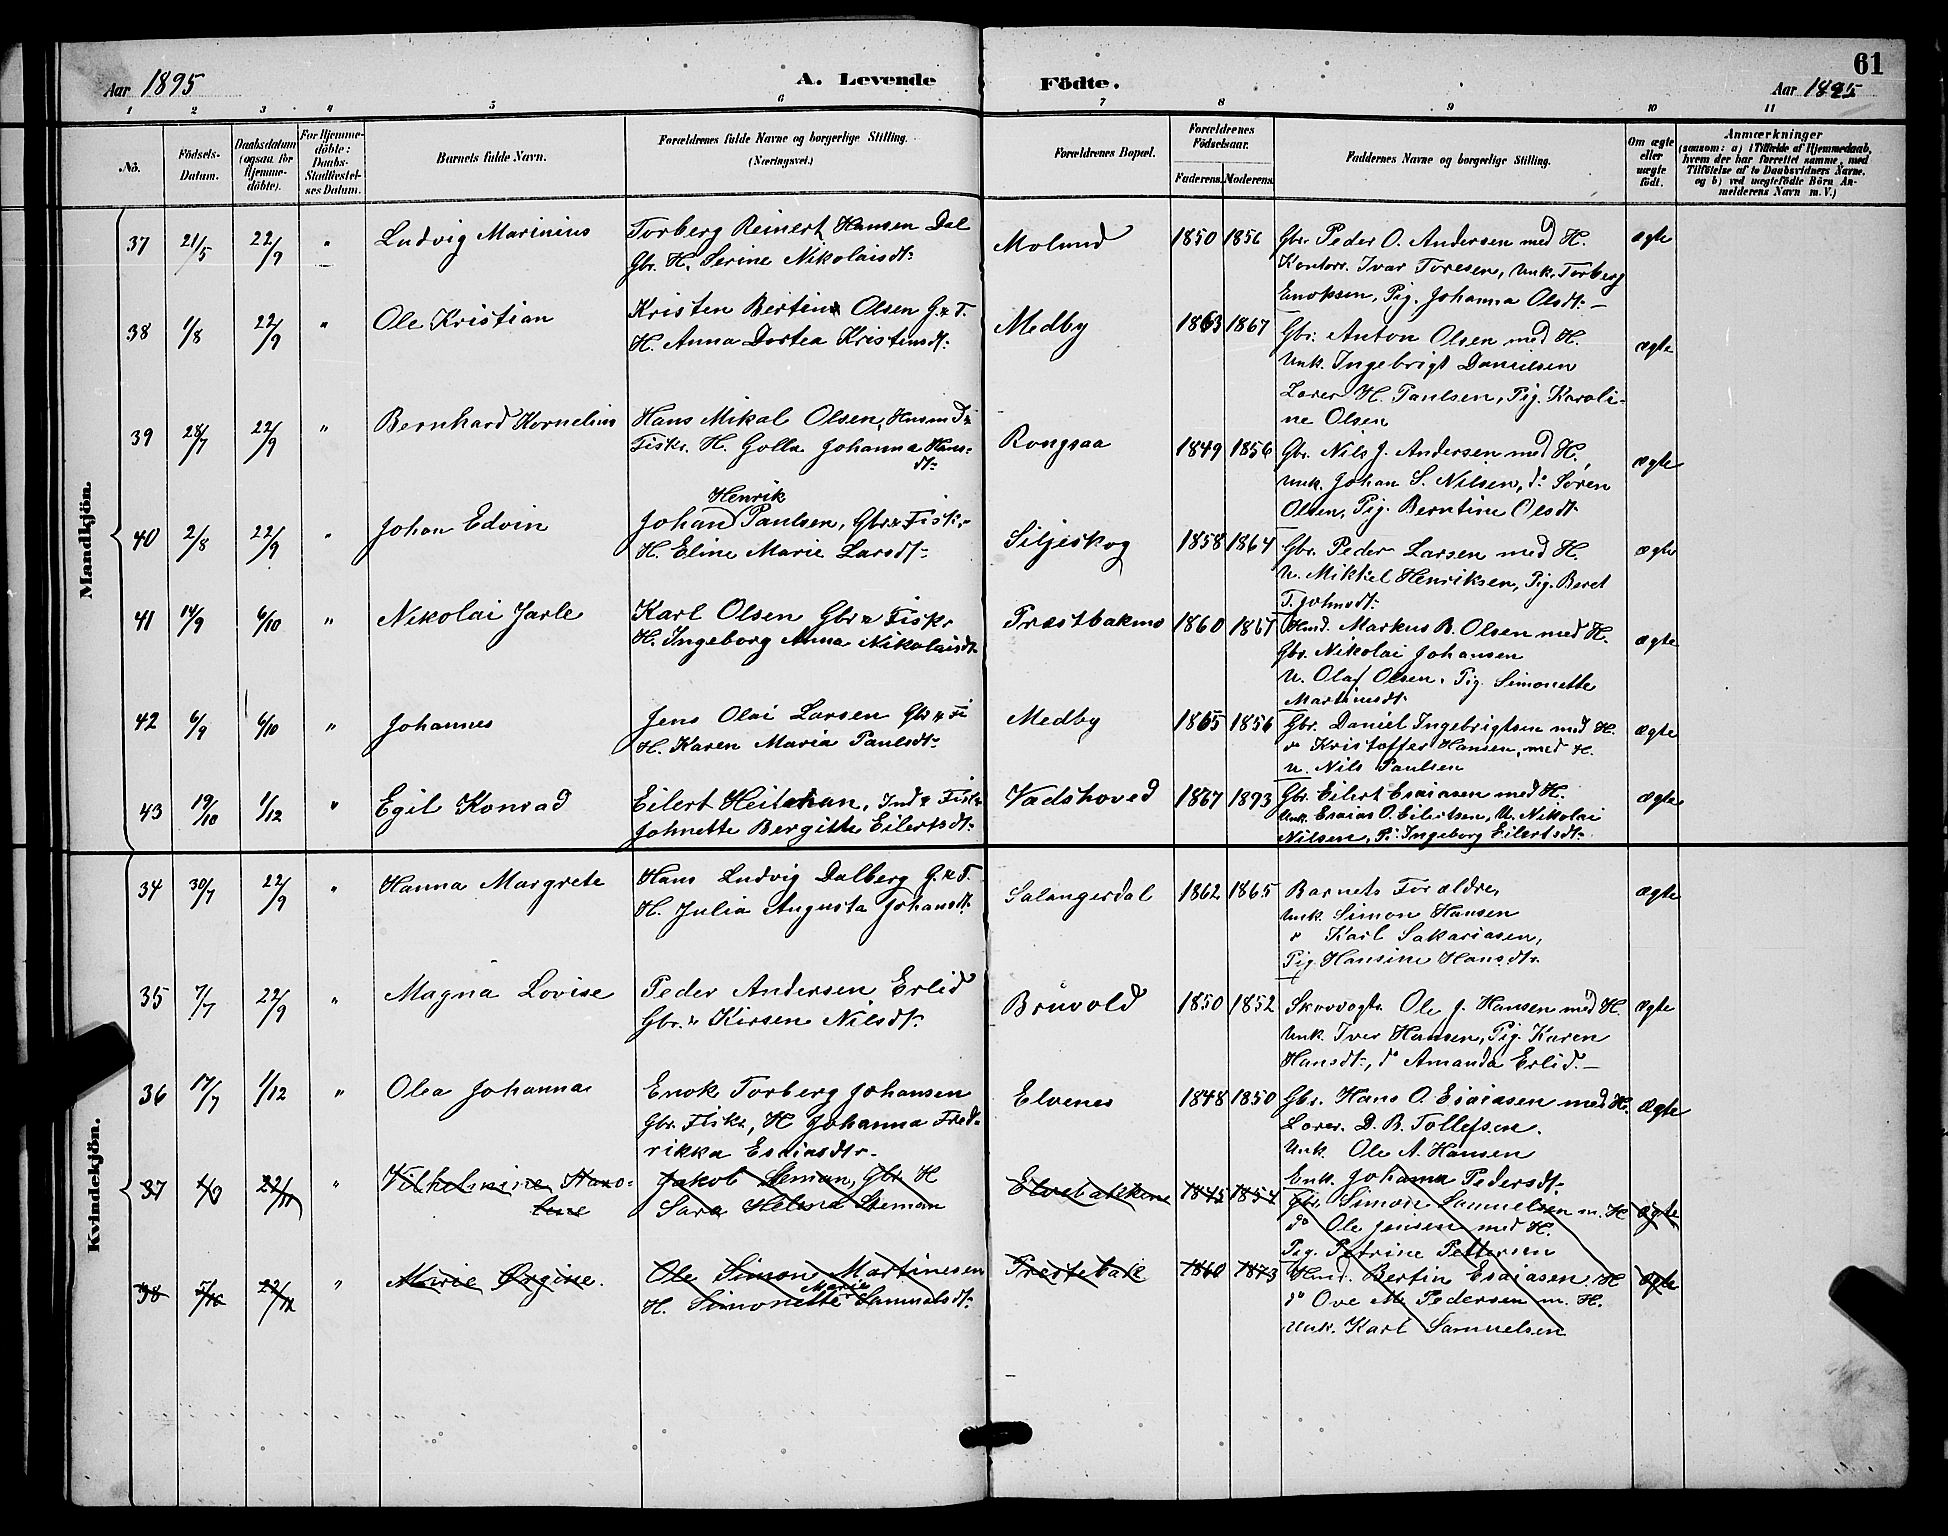 61
Aar 1895
A. Levende Födte.
Aar 1895
1 2 3 4 5 6 7 8 9 10 11
No.
Födsels-
Datum.
Daabsdatum
(ogsaa for
Hjemme-
döbte).
For Hjemme-
döbte:
Daabs-
Stadfæstel-
ses Datum.
Barnets fulde Navn.
Forældrenes fulde Navne og borgerlige Stilling.
(Næringsvei.)
Forældrenes Bopæl.
Forældrenes
Födselsaar.
Faderens. Moderens.
Faddernes Navne og borgerlige Stilling.
Om ægte
eller
uægte
födt.
Anmærkninger
(saasom: a) i Tilfælde af Hjemmedaab,
hvem der har forrettet samme, med
Tilföielse af to Daabsvidners Navne,
og b) ved uægtefödte Börn An-
melderens Navn m. V.)
Mandkjön.
37 21/5 22/9 " Ludvig Marinius
Torberg Reinert Hansen Dal
Gbr. H. Serine Nikolaisdt:
Molund 1850 1856
Gbr. Peder O. Andersen med H.
Kontors. Ivar Toresen, Unk. Torberg
Enoksen, Pig. Johanna Olsdt:—
ægte
38 1/8 22/9 " Ole Kristian
Kristen Bertin Olsen G. & F.
H. Anna Dortea Kristensdt:
Medby 1863 1867
Gbr. Anton Olsen med H.
Unk. Ingebrigt Danielsen
Lærer H. Paulsen, Pig. Karoli-
ne Olsen
ægte
39 28/7 22/9 " Bernhard Kornelius
Hans Mikal Olsen, Husmd &
Fisker. H. Golla Johanna Hans-
dt:
Rongsaa 1849 1856
Gbr. Nils J. Andersen med H.,
Unk. Johan S. Nilsen, do Sören
Olsen, Pig. Berntine Olsdt.
ægte
40 2/8 22/9 " Johan Edvin
Henrik
Johan Paulsen, Gbr & Fisk.
H. Eline Marie Larsdt:
Siljeskog 1858 1864
Gbr. Peder Larsen med H.
U. Mikkel Henriksen, Pig. Beret
T. Johnsdt:
ægte
41 14/9 6/10 " Nikolai Jarle
Karl Olsen Gbr & Fisker
H. Ingeborg Anna Nikolaisdt.
Præstbakmo 1860 1867
Hmd. Markus B. Olsen med H.
Gbr. Nikolai Johansen
U. Olaf Olsen. Pig. Simonette
Martinusdt.
ægte
42 6/9 6/10 " Johannes
Jens Olai Larsen Gbr & Fi
H. Karen Maria Paulsdt:
Medby 1865 1856
Gbr. Daniel Ingebrigtsen med H.
" Kristoffer Hansen, med H.
U. Nils Paulsen
ægte
43 19/10 1/12 " Egil Konrad
Eilert Heitman, Ind & Fisk
Johnette Bergitte Eilertsdt:
Vadshoved 1867 1873
Gbr. Eilert Esaiasen med H.
Unk. Esaias O. Eilertsen, U. Nikolai
Nilsen, Pi. Ingeborg Eilertsdt:
ægte
Kvindekjön.
34 30/7 22/9 " Hanna Margrete
Hans Ludvig Dalberg G. & F.
H. Julia Augusta Johansdt.
Salangerdal 1862 1865
Barnets Forældre,
Unk. Simon Hansen
" Karl Sakariasen,
Pig. Hansine Hansdtr.
ægte
35 7/7 22/9 " Magna Lovise
Peder Andersen Erlid
Gbr. & Kirsen Nilsdt.
Bruvold 1850 1852
Skovvogt. Ole J. Hansen med H.
Unk. Iver Hansen, Pig. Karen
Hansdt:, do Amanda Erlid.—
ægte
36 17/7 1/12 " Olea Johanna
Enok Torberg Johansen
Gbr. Fisk, H Johanna Fred-
rikka Esaiasdtr.
Elvenes 1848 1850
Gbr. Hans O. Esaiasen med H.
Lærer. D. B. Tollefsen.
Unk. Ole A. Hansen
Enk. Johanna Pedersdt.
Ægte
37 22/11 " Vilhelmine
Jakob Steman, Gbr. H
Sara Helena Steman
Elvebakken 1845 1854
Gbr. Simon Samuelsen m. H
do Ole Jensen med H.
Pig. Petrine Pettersen
ægte
38 5/10 22/11 " Marie Ørgine.
Ole Simon Martinesen
Marie
H. Simonette Samuelsdt:
Prestebak 1860 1873
Hmd. Bertin Esaiasen H
do Ove M. Pedersen m. H.
Unk. Karl Samuelsen
ægte